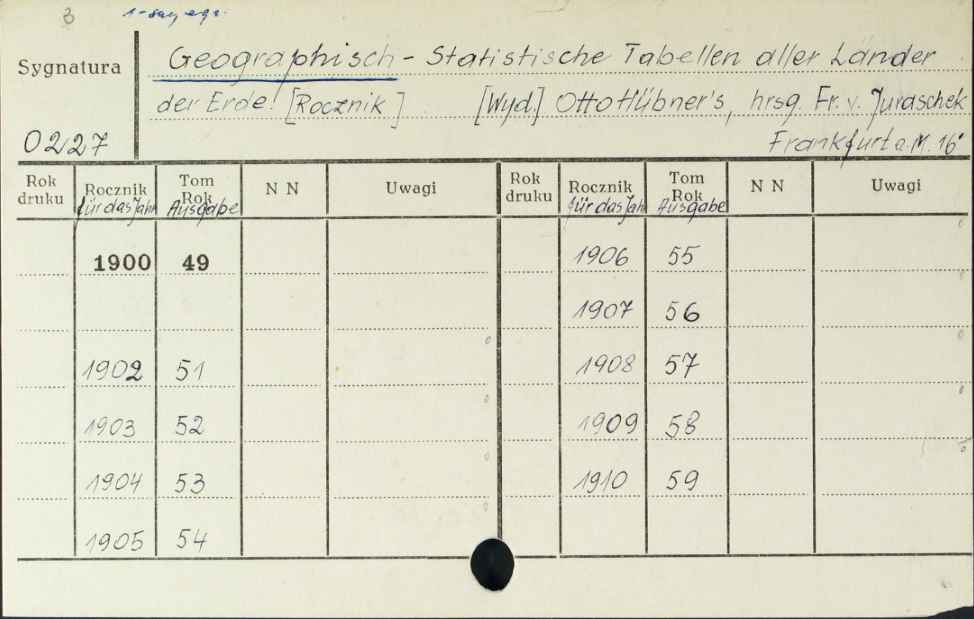 3 1-szy egz.
Sygnatura Geographisch - Statistische Tabellen aller Länder
der Erde. [Rocznik] [Wyd.] Otto Hübner's, hrsg. Fr. v. Juraschek
0227 Frankfurt a. M. 16°
Rok druku Rocznik für das Jahr Tom Rok Ausgabe N N Uwagi Rok druku Rocznik für das Jahr Tom Rok Ausgabe N N Uwagi
1900 49 1906 55
1907 56
1902 51 1908 57
1903 52 1909 58
1904 53 1910 59
1905 54